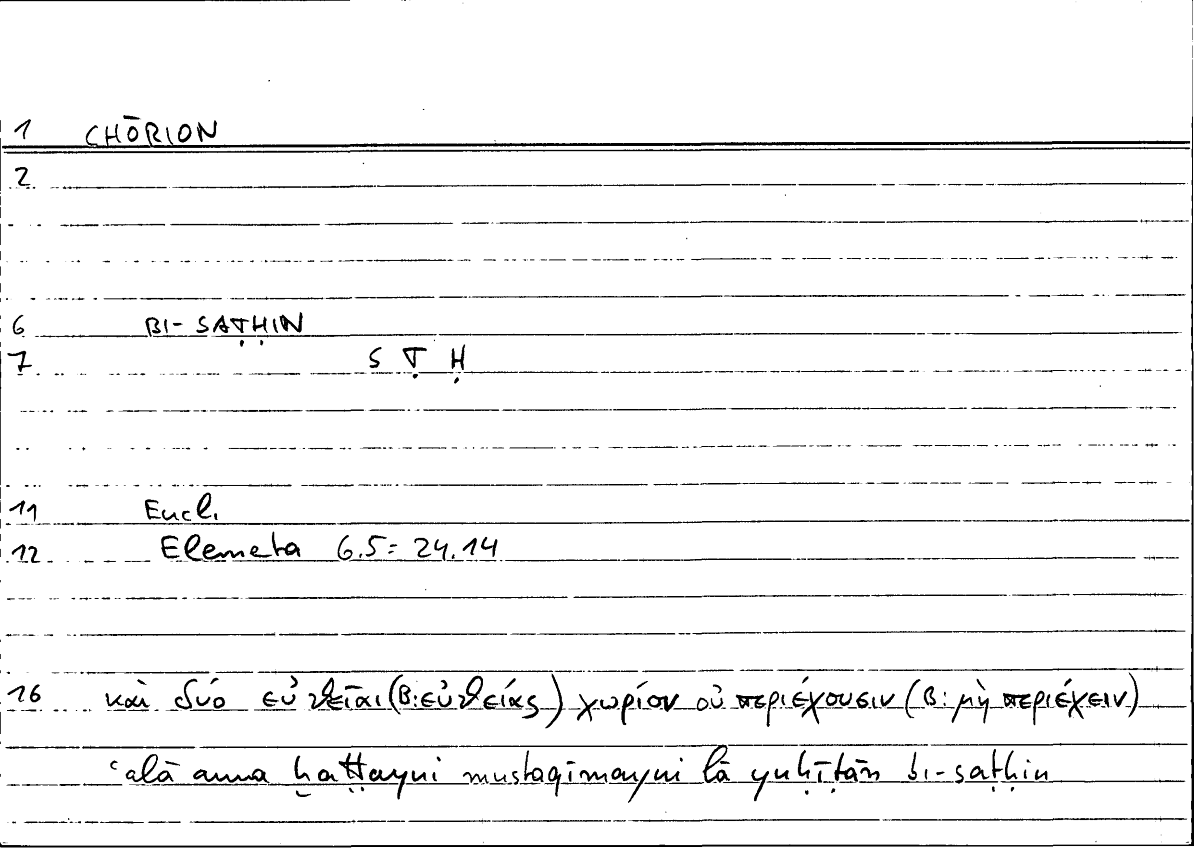 1 CHŌRION
2
6 BI-SAṬḤIN
7 S Ṭ Ḥ
11 Eucl.
12 Elemeta 6.5 = 24.14
16 καὶ δύο εὐθεῖαι (B: εὐθείας) χωρίον οὐ περιέχουσιν (B: μὴ περιέχειν)
ʿalā anna ḫaṭṭayni mustaqīmayni lā yuḥīṭān bi-saṭḥin